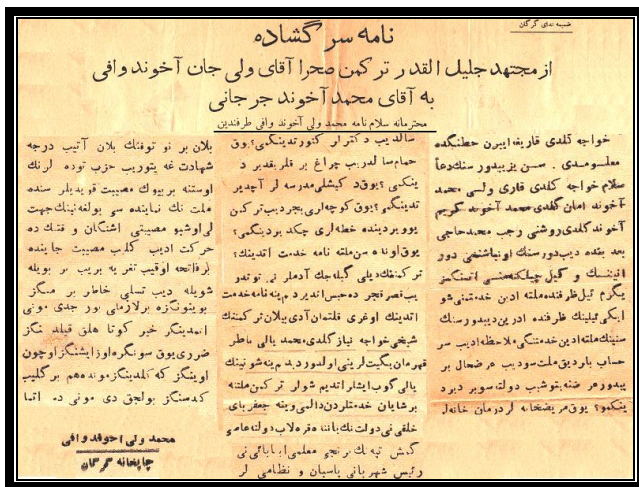 ضمیمه ندای گرگان
نامه سرگشاده
از مجتهد جلیل القدر ترکمن صحرا آقای ولی جان آخوند وافی
به آقای محمد آخوند جرجانی
محترمانه سلام نامه محمد ولی آخوند وافی طرفندین
خواجه کلدی قاریغه ایبرن خطنگده
معلومدی . سن یزیبدورسنك دعاً
سلام خواجه کلدی قاری ولی محمد
آخوند امان کلدی محمد آخوند کریم
آخوند کلدی روشنی رجب محمد حاجی
بعد بقده دیب دورسنك
اینینك و گیل
ملته ادن خدمتنی شو
ایکی ئیلینك ظرفنده ادرین دیبدورسنك
سنینك ملته ادین خدمتنگی ملاحظه ادیب سر
حساب باردیق ملت سودیب عرضحال بر
دولته سویر دیرد
ینکمو؟ یوق مریضخانه لر درمان خانه لر
سالدیب دکترلر کتورتدینگمی؟ یوق
حمام سالدریب چراغ بر قلربقدیرد
ینگمی؟ یوق دکیشلی مدرسه لر آچدیر
تدینگمی؟ یوق کوچه لری بجردیب ترکمن
یوو بردینده خطه لری چکدیردینگمی؟
یوق اونده سن ملته نامه خدمت اتدینك؟
ترکمننك دیلی گیله جك آدملرنی توتدور
یب قصر قجرده حبس اندیردم ینه نامه خدمت
اتدینك اوغری قلتمان آدی بیلان ترکمننك
شیخی خواجه نیاز کلدی محمد یالی ماطر
قهرمان یگیت لرینی اولدوردیدم ینه شونینك
یالی کوب ایشلر اتدیم شولر ترکمن ملته
برشایان خدمتلردن دالمی وینه جعفربای
خلقی نی دولتنك باننده قره لاب دولته عاصی
کمش تپه نك برنجی معلمی ابابائی نی
رئیس شهربانی پاسبان و نظامی لر
بلان بر نو توفنك بلان آتیب درجه
شهادت غه یتوریب حزب توده لرنك
اوستنه بر بیوك مصیبت قویدیلر سنده
ملت نك نماینده سی بولغه نینك جهت
لی اوشبو مصیبتی اشتگان وقتك ده
حرکت ادیب کلب مصیبت جاینده
لر فاتحه اوقیب تغزیه بریب بر بویله
شویله دیب تسلی خاطر بر منگز
بوینونگزه بر لازملی بور جدی مونی
اتمدینگز خبر کوتا هلق قیلدنگز
ضرری یوق سونگره اوز ایشنگز اوچون
اوینگز که کلدینگز مونده هم بر گلیب
کدسنگز بولجق دی مونی ده اتما
محمد ولی آخوند وافی
چاپخانه گرگان